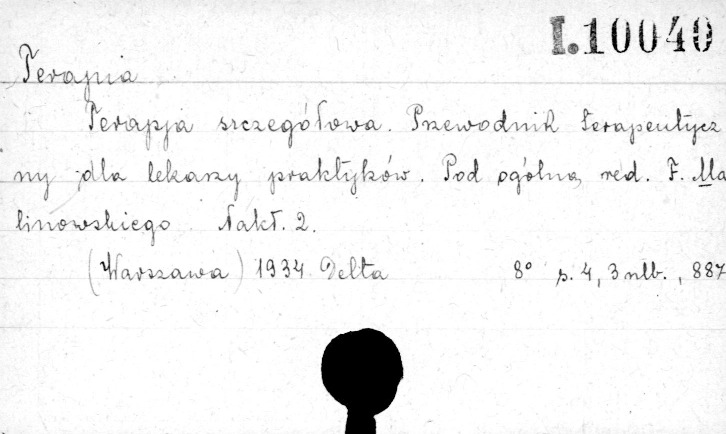 I.10040
Terapia
Terapja szczegółowa. Przewodnik terapeutycz
ny dla lekarzy praktyków. Pod ogólną red. F. Ma
linowskiego Nakł. 2.
(Warszawa) 1934 Delta 8° s. 4, 3 nlb., 887